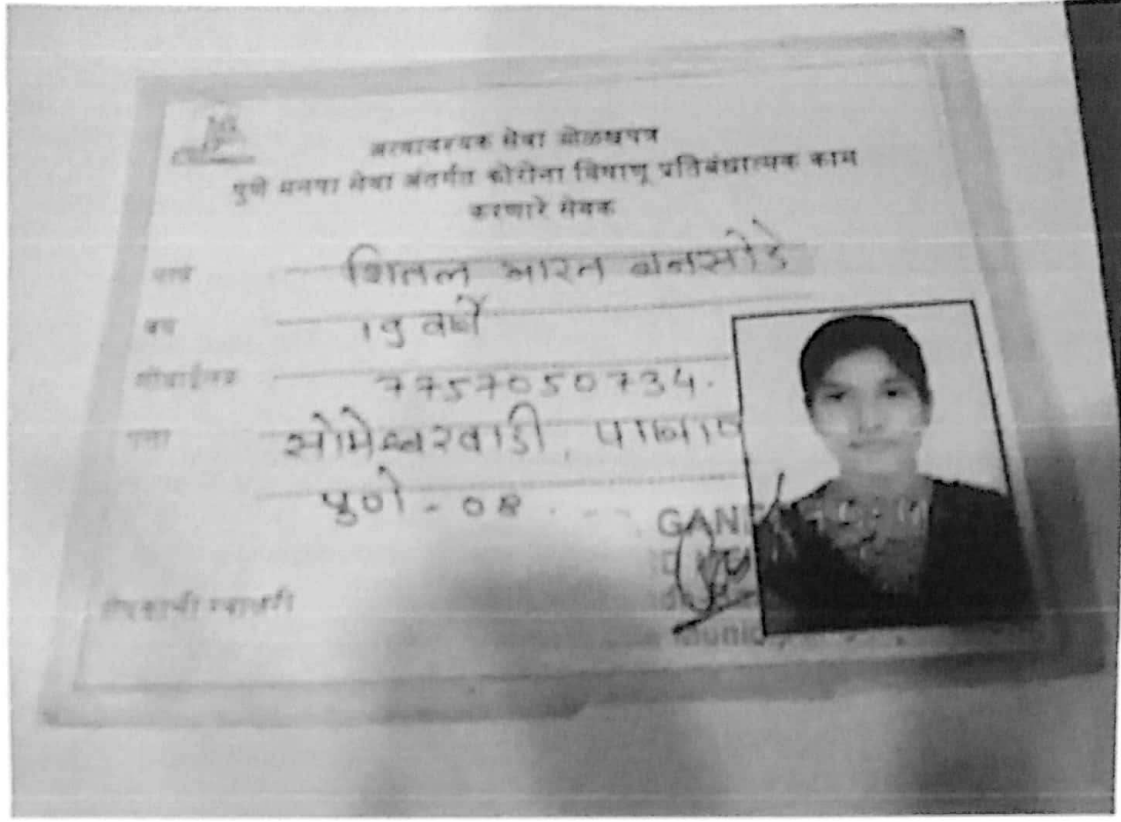 अत्यावश्यक सेवा ओळखपत्र
पुणे मनपा सेवा अंतर्गत कोरोना विषाणू प्रतिबंधात्मक काम
करणारे सेवक
नाव शितल भारत बनसोडे
वय 19 वर्षे
मोबाईल नं 7757050734.
पत्ता सोमेश्वरवाडी,
पुणे - 08
सेवकाची स्वाक्षरी